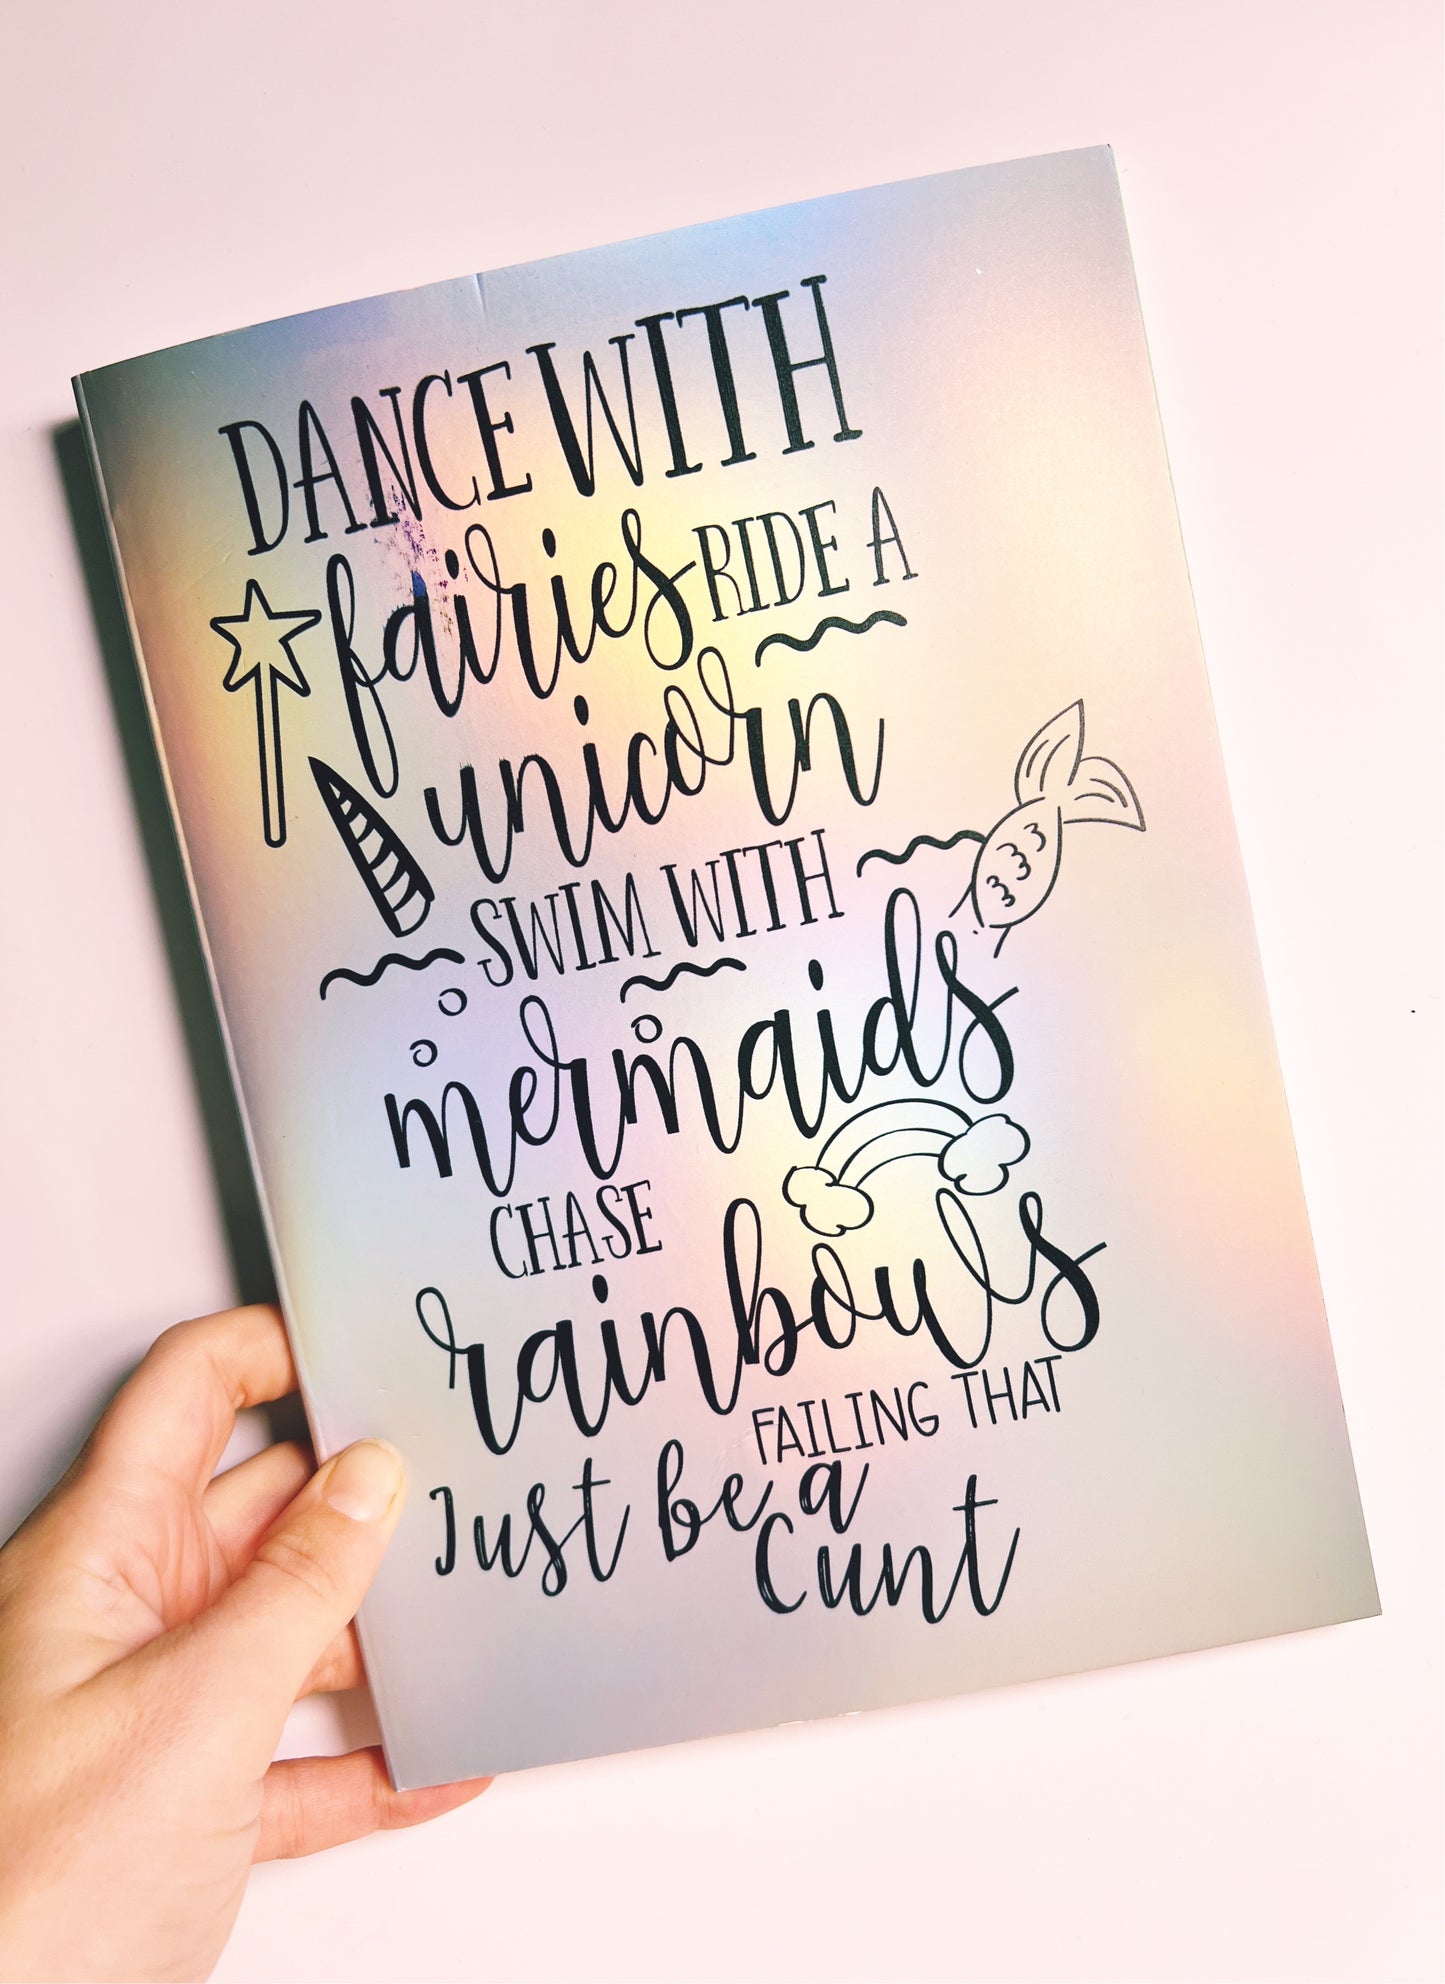 DANCE WITH
fairies RIDE A
unicorn
SWIM WITH
mermaids
CHASE
rainbows
FAILING THAT
Just be a
Cunt